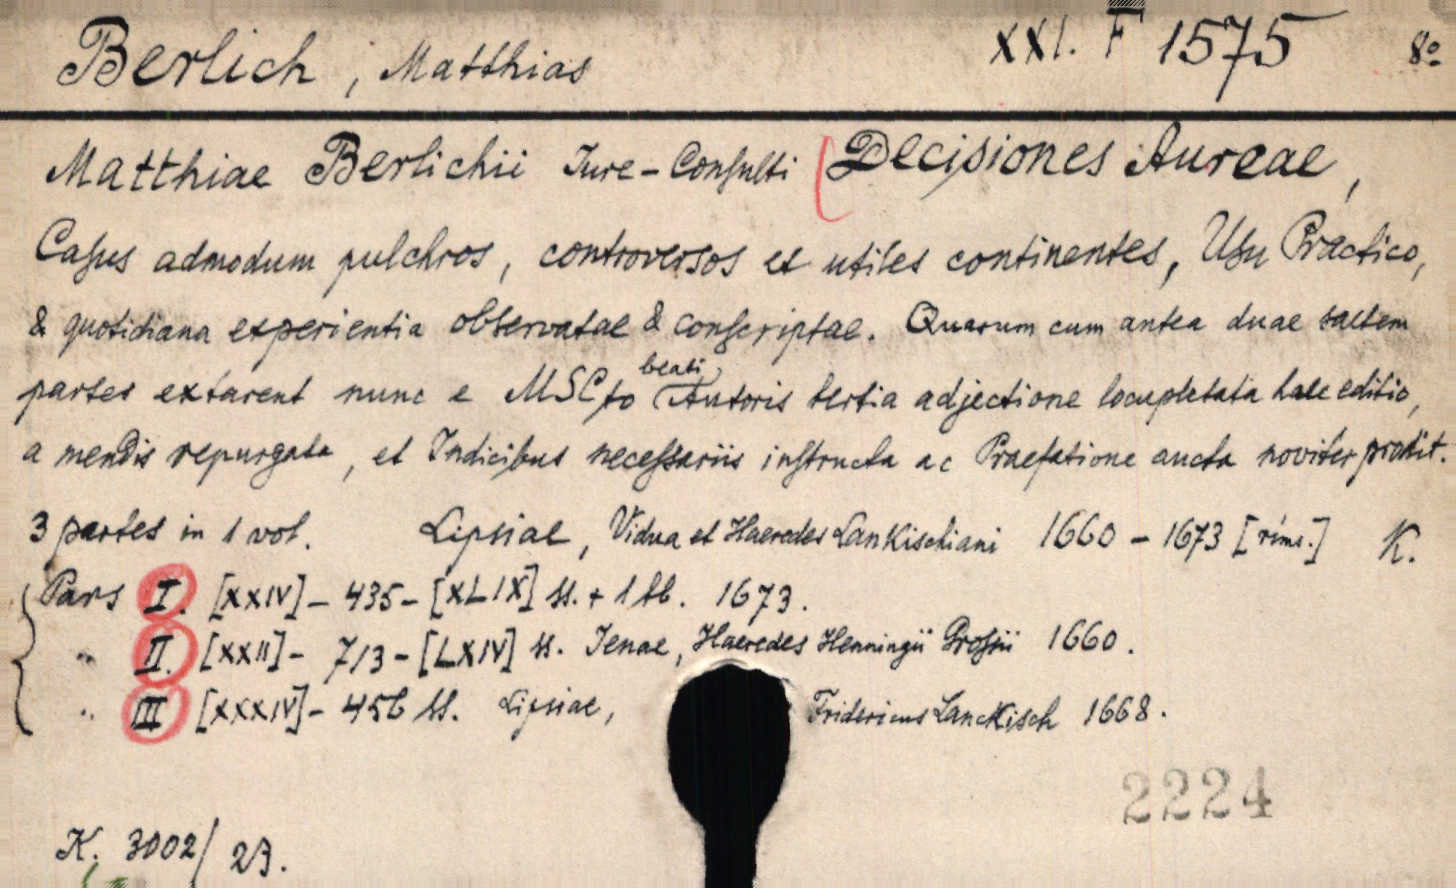 Berlich, Matthias XXI. F 1575 8º
Matthiae Berlichii Iure-Consulti Decisiones Aureae,
Casus admodum pulchros, controversos et utiles continentes, Usu Practico,
& quotidiana experientia observatae & conscriptae. Quarum cum antea duae saltem
partes extarent nunc e MSCto beati Autoris tertia adjectione locupletata haec editio,
a mendis repurgata, et Indicibus necessariis instructa ac Praefatione aucta noviter prodit.
3 partes in 1 vol. Lipsiae, Vidua et Haeredes Lankischiani 1660 - 1673 [ríms.] K.
Pars I. [XXIV] - 435 - [XLIX] ll. + 1 tb. 1673.
" II. [XXII] - 713 - [LXIV] ll. Ienae, Haeredes Henningii Grossii 1660.
" III [XXXIV] - 456 ll. Lipsiae, Fridericus Lanckisch 1668.
2224
K. 3002/23.